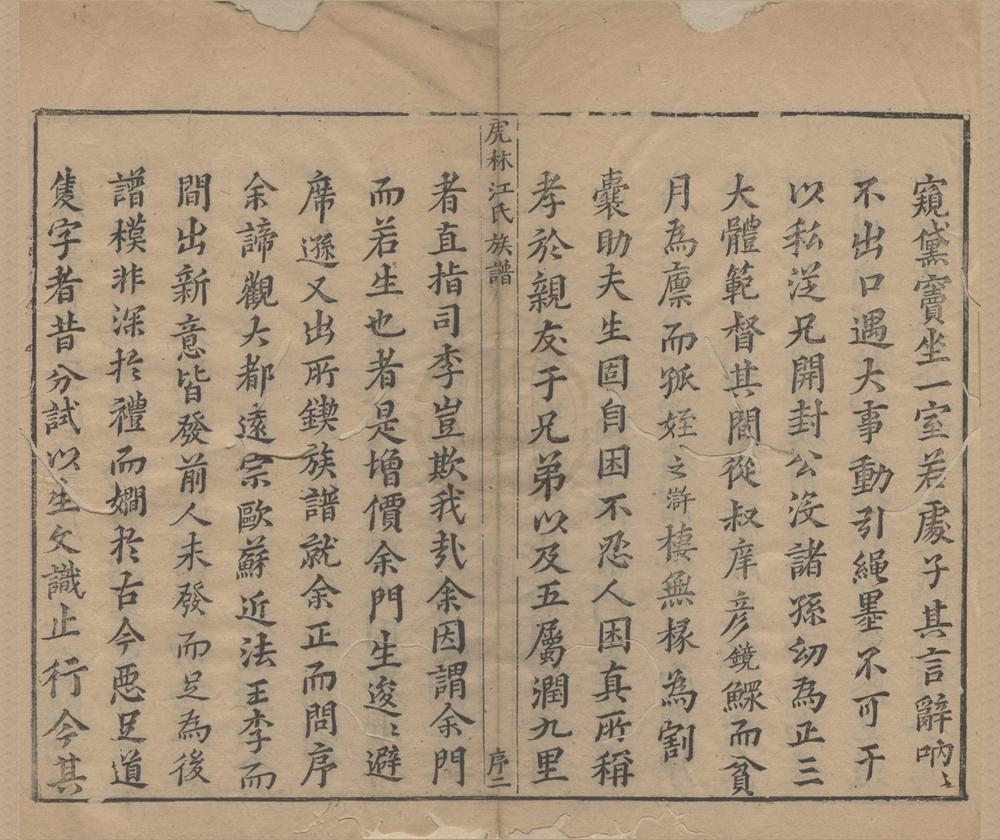 窺黛竇坐一室若處子其言辭吶〻
不出口遇大事動引繩墨不可干
以私從兄開封公沒諸孫幼為正三
大體範督其間從叔庠彥鏡鰥而貧
月為廪而孤姪之澥棲無椽為割
囊助夫生固自困不忍人困真所稱
孝於親友于兄弟以及五屬潤九里
虎林江氏族譜
序二
者直指司李豈欺我㢤余因謂余門
而若生也者是增價余門生逡〻避
席遜又出所鍥族譜就余正而問序
余諦觀大都遠宗歐蘇近法王李而
間出新意皆發前人未發而足為後
譜模非深扵禮而嫺扵古今惡足道
隻字者昔分試以生文識止行今其